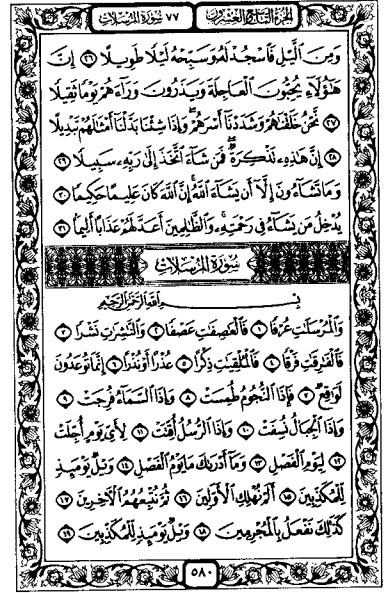 الجزء التاسع والعشرون ٧٧ سورة المرسلات
وَمِنَ الَّيْلِ فَاسْجُدْ لَهُ وَسَبِّحْهُ لَيْلًا طَوِيلًا ٢٦ إِنَّ
هَٰؤُلَاءِ يُحِبُّونَ الْعَاجِلَةَ وَيَذَرُونَ وَرَاءَهُمْ يَوْمًا ثَقِيلًا
٢٧ نَّحْنُ خَلَقْنَاهُمْ وَشَدَدْنَا أَسْرَهُمْ وَإِذَا شِئْنَا بَدَّلْنَا أَمْثَالَهُمْ تَبْدِيلًا
٢٨ إِنَّ هَٰذِهِ تَذْكِرَةٌ فَمَن شَاءَ اتَّخَذَ إِلَىٰ رَبِّهِ سَبِيلًا ٢٩
وَمَا تَشَاءُونَ إِلَّا أَن يَشَاءَ اللَّهُ إِنَّ اللَّهَ كَانَ عَلِيمًا حَكِيمًا ٣٠
يُدْخِلُ مَن يَشَاءُ فِي رَحْمَتِهِ وَالظَّالِمِينَ أَعَدَّ لَهُمْ عَذَابًا أَلِيمًا ٣١
سورة المرسلات
بِسْمِ اللَّهِ الرَّحْمَٰنِ الرَّحِيمِ
وَالْمُرْسَلَاتِ عُرْفًا ١ فَالْعَاصِفَاتِ عَصْفًا ٢ وَالنَّاشِرَاتِ نَشْرًا ٣
فَالْفَارِقَاتِ فَرْقًا ٤ فَالْمُلْقِيَاتِ ذِكْرًا ٥ عُذْرًا أَوْ نُذْرًا ٦ إِنَّمَا تُوعَدُونَ
لَوَاقِعٌ ٧ فَإِذَا النُّجُومُ طُمِسَتْ ٨ وَإِذَا السَّمَاءُ فُرِجَتْ ٩
وَإِذَا الْجِبَالُ نُسِفَتْ ١٠ وَإِذَا الرُّسُلُ أُقِّتَتْ ١١ لِأَيِّ يَوْمٍ أُجِّلَتْ
١٢ لِيَوْمِ الْفَصْلِ ١٣ وَمَا أَدْرَاكَ مَا يَوْمُ الْفَصْلِ ١٤ وَيْلٌ يَوْمَئِذٍ
لِّلْمُكَذِّبِينَ ١٥ أَلَمْ نُهْلِكِ الْأَوَّلِينَ ١٦ ثُمَّ نُتْبِعُهُمُ الْآخِرِينَ ١٧
كَذَٰلِكَ نَفْعَلُ بِالْمُجْرِمِينَ ١٨ وَيْلٌ يَوْمَئِذٍ لِّلْمُكَذِّبِينَ ١٩
٥٨٠